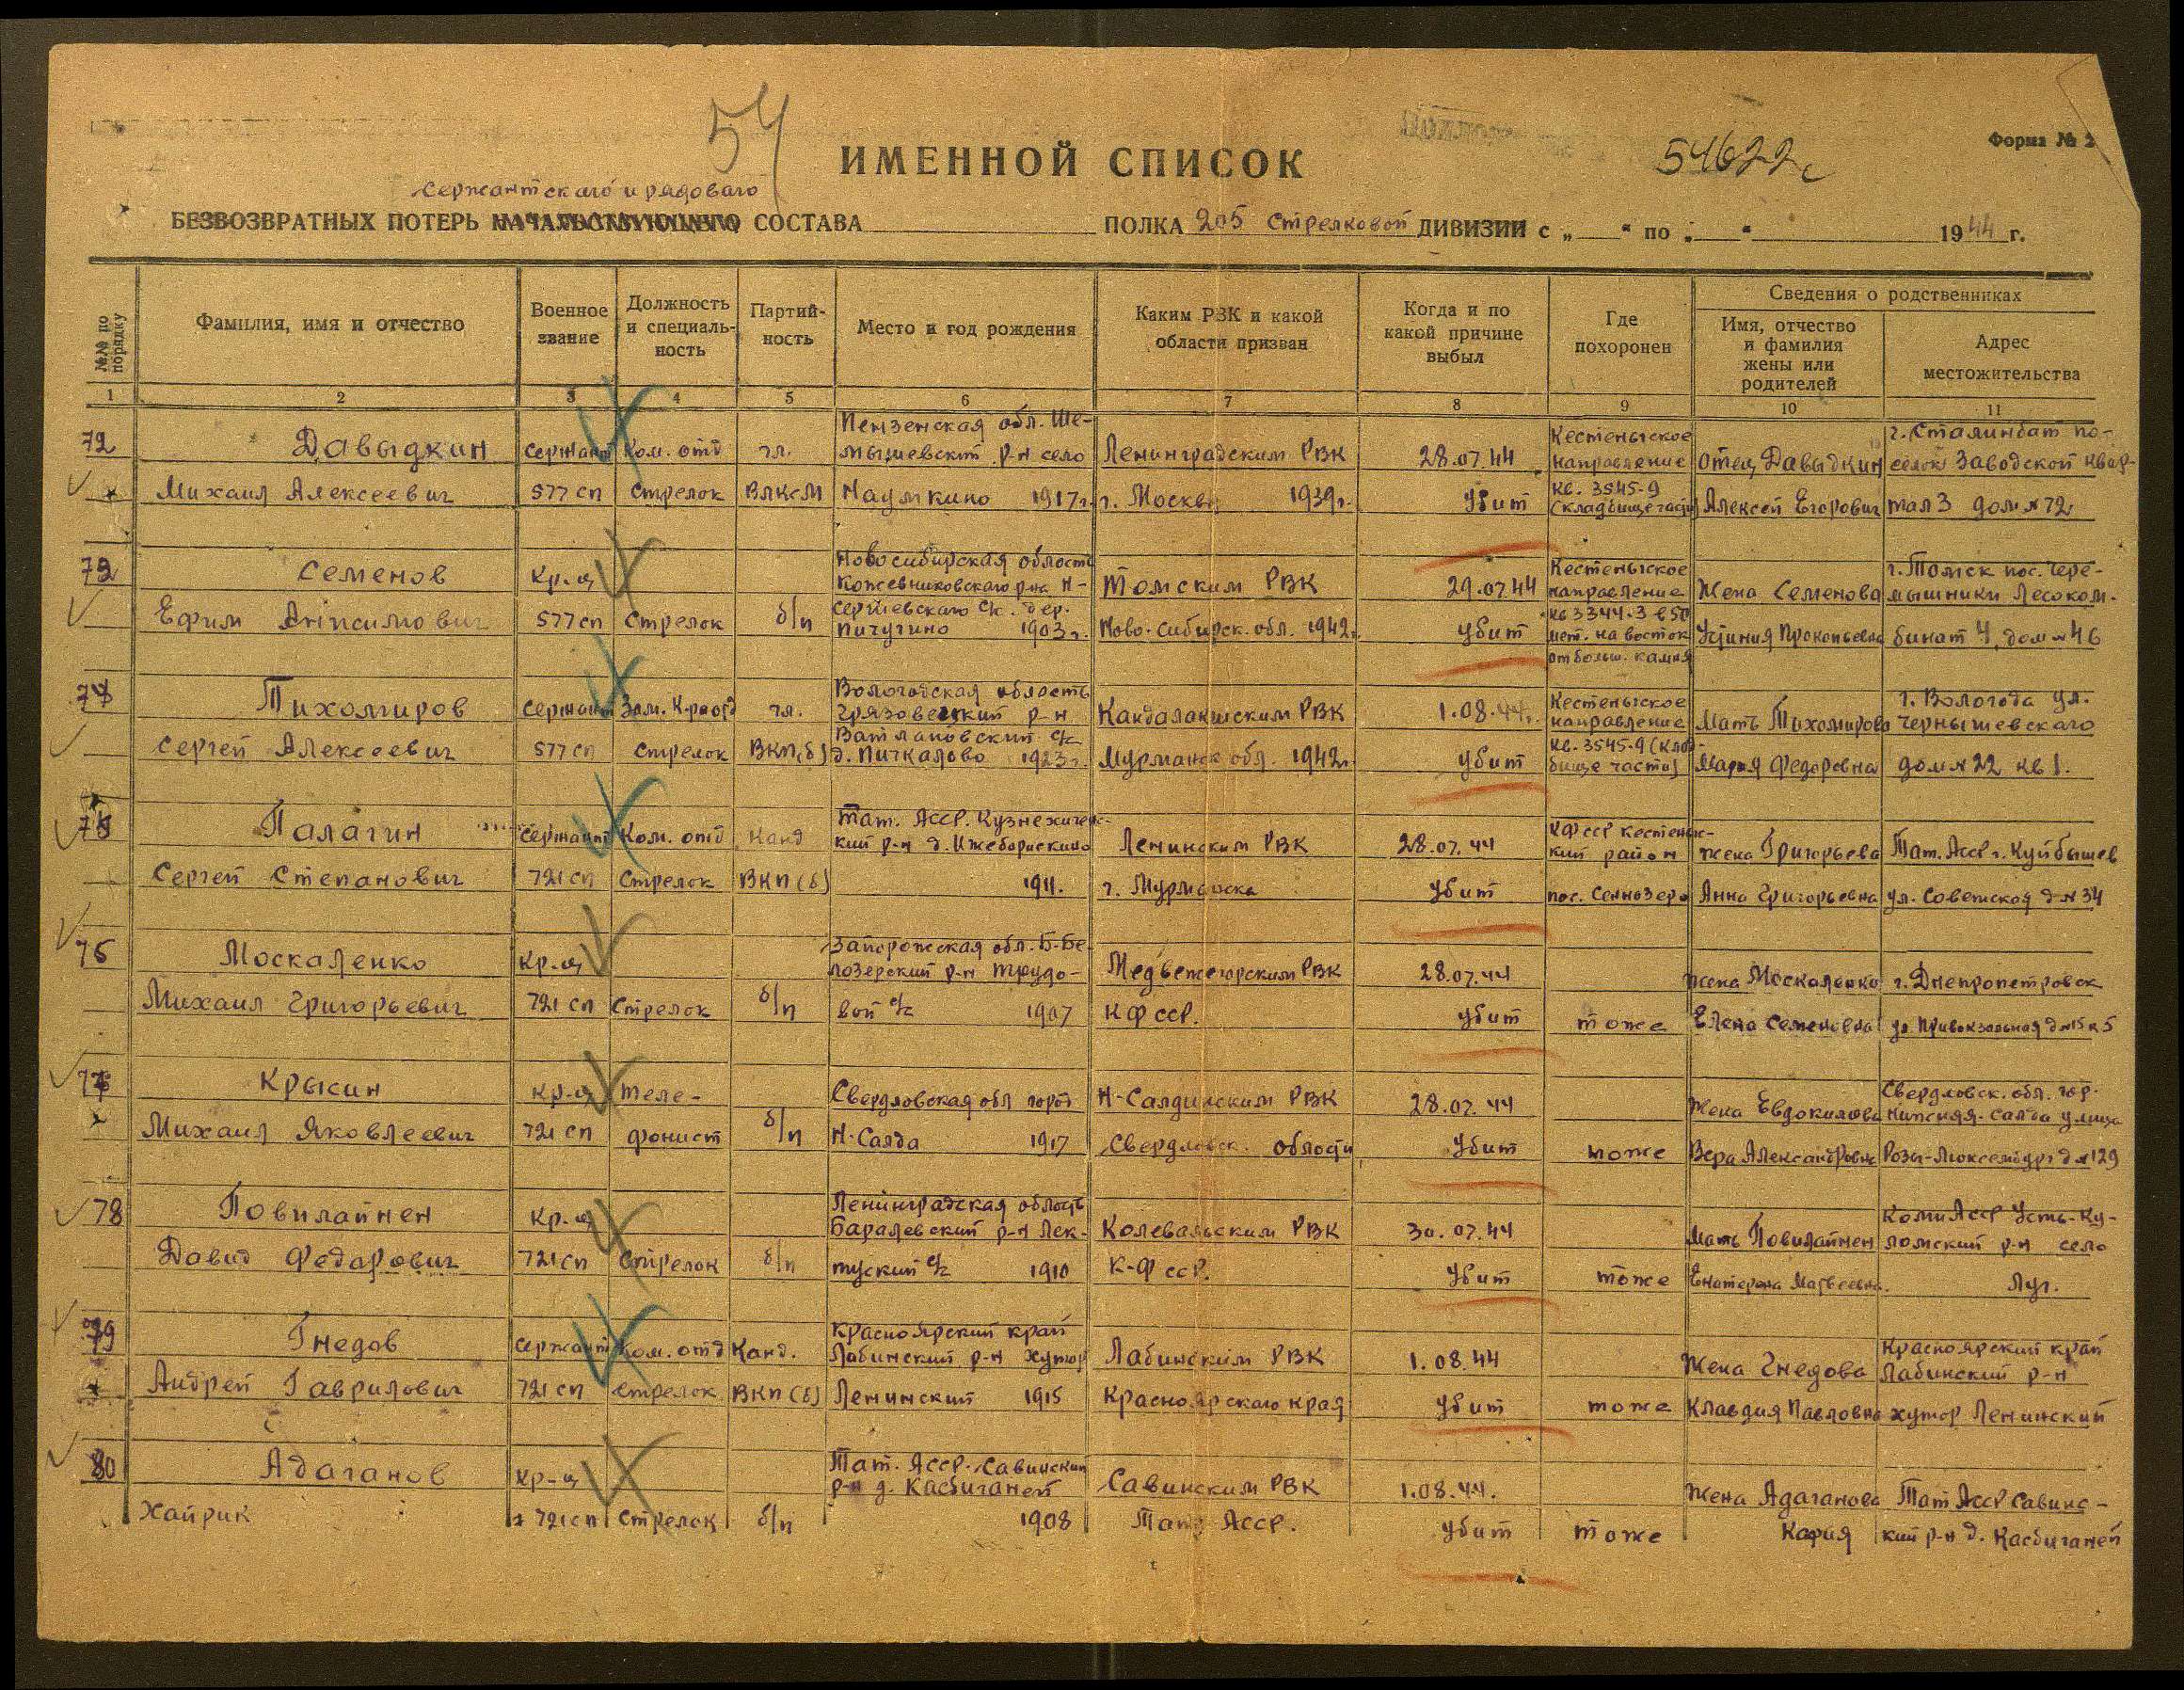 54
54622с
Форма № 2
ИМЕННОЙ СПИСОК
Сержантскаго и рядоваго
БЕЗВОЗВРАТНЫХ ПОТЕРЬ НАЧАЛЬСТВУЮЩЕГО СОСТАВА ПОЛКА 205 Стрелковой ДИВИЗИИ с „ “ по „ “ 1944 г.
№№ по порядку
Фамилия, имя и отчество
Военное звание
Должность и специаль-ность
Партий-ность
Место и год рождения
Каким РВК и какой области призван
Когда и по какой причине выбыл
Где похоронен
Сведения о родственниках
Имя, отчество и фамилия жены или родителей
Адрес местожительства
1 2 3 4 5 6 7 8 9 10 11
Пензенская обл. Ше- Кестеньгское г. Сталинбат по-
72 Давыдкин Сержант Ком. отд чл. мышевский р-н село Ленинградским РВК 28.07.44 направление Отец Давыдкин селок Заводской квар-
Михаил Алексеевич 577 сп Стрелок ВЛКСМ Наумкино 1917г. г. Москвы 1939г. убит кв. 3545-9 Алексей Егорович тал 3 дом № 72
Новосибирская область Кестеньгское г. Томск пос. Чере-
Семенов Кр-ц Кожевниковскаго р-на Н- Томским РВК 29.07.44 направление Жена Семенова мышники Лесоком-
Ефим 577 сп Стрелок б/п Сергиевскаго с/с. дер. Пичугино 1903г. Ново-Сибирск. обл. 1942г. убит кв 3344-3 в 50 мет. на восток Устиния Прокопьевна бинат 4, дом № 46
от больш. камня
Вологодская область Кестеньгское г. Вологода ул.
74 Тихомиров Сержант Зам. К-ра отд чл. Грязовецкий р-н Кандалакшским РВК 1.08.44г. направление Мать Тихомирова Чернышевскаго
Сергей Алексеевич 577 сп Стрелок ВКП(б) Ватлановский с/с д. Пичкалово 1923г. Мурманск обл. 1942г. убит кв. 3545-9 (клад-бище части) Мария Федоровна дом № 22 кв 1.
Тат. Асср. Кузнехичес- КФсср Кестеньг-
75 Палагин Сержант Ком. отд Канд кий р-н д. Ижеборискино Ленинским РВК 28.07.44 ский район Жена Григорьева Тат. Асср г. Куйбышев
Сергей Степанович 721 сп Стрелок ВКП(б) 1911. г. Мурманска убит пос. Сеннозеро Анна Григорьевна ул. Советской д № 34
Запорожская обл. Б-Бе-
76 Москаленко Кр-ц лозерский р-н Трудо- Медвежегорским РВК 28.07.44 Жена Москаленко г. Днепропетровск
Михаил Григорьевич 721 сп Стрелок б/п вой с/с 1907 КФсср. убит тоже Елена Семеновна ул. Привокзальная д №15 к 5
Свердловск. обл. гор.
77 Крысин Кр-ц Теле- Свердловская обл город Н-Салдинским РВК 28.07.44 Жена Евдокимова Нижняя-Салда улица
Михаил Яковлеевич 721 сп фонист б/п Н-Салда 1917 Свердловск. области убит тоже Вера Александровна Розы-Люксембург д № 129
Ленинградская область Коми Асср Усть-Ку-
78 Повилайнен Кр-ц Баралевский р-н Лек- Колевальским РВК 30.07.44 Мать Повилайнен ломский р-н село
Давид Федарович 721 сп Стрелок б/п туский с/с 1910 К-Фсср. убит тоже Екатерена Матвеевна Луг.
Красноярский край Красноярский край
79 Гнедов Сержант Ком. отд Канд. Лабинский р-н хутор Лабинским РВК 1.08.44 Жена Гнедова Лабинский р-н
Андрей Гаврилович 721 сп Стрелок ВКП(б) Ленинский 1915 Красноярскаго края убит тоже Клавдия Павловна хутор Ленинский
Тат. Асср. Савинский
80 Адаганов Кр-ц р-н д. Касбиганей Савинским РВК 1.08.44. Жена Адаганова Тат Асср Савинс-
Хайрик 721 сп Стрелок б/п 1908 Тат Асср. убит тоже Кафия кий р-н д. Касбиганей